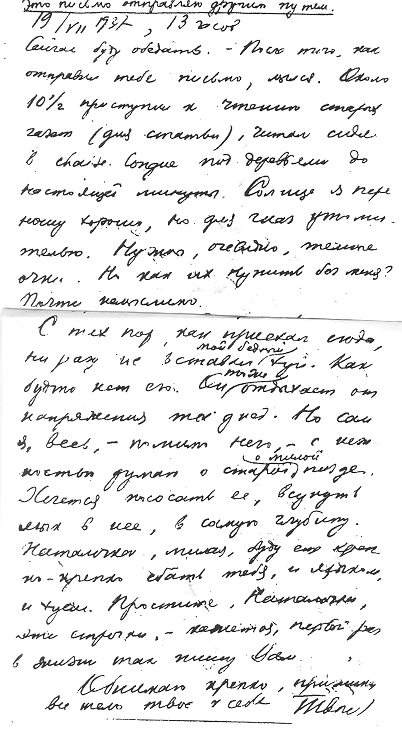 Это письмо отправляю другим путем.
19/VII 1937, 13 часов
Сейчас буду обедать. - После того, как
отправил тебе письмо, мылся. Около
10½ приступил к чтению старых
газет (для статьи), читал сидя
в chaise longue под деревьями до
настоящей минуты. Солнце я пере
ношу хорошо, но для глаз утоми-
тельно. Нужно, очевидно, темные
очки. Но как их купить без меня?
Почти немыслимо.
С тех пор, как приехал сюда,
ни разу не вставал мой бедный хуй. Как
будто нет его. Он тоже отдыхает от
напряжения тех дней. Но сам
я, весь, - помимо него, - с неж
ностью думаю о старой, о милой пизде.
Хочется пососать ее, всунуть
язык в нее, в самую глубину.
Наталочка, милая, буду еще креп
ко-крепко ебать тебя, и языком,
и хуем. Простите, Наталочка,
эти строчки, - кажется, первый раз
в жизни так пишу Вам.
Обнимаю крепко, прижимая
все тело твое к себе Твой